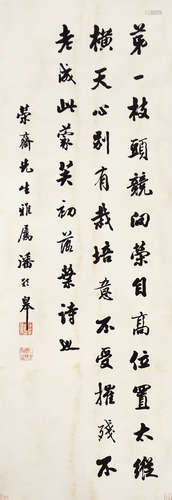 第一枝頭競向榮自高位置太縱
橫天心別有栽培意不受摧殘不
老成此蒙笑初落葉詩也
榮齋先生雅屬潘齡皋